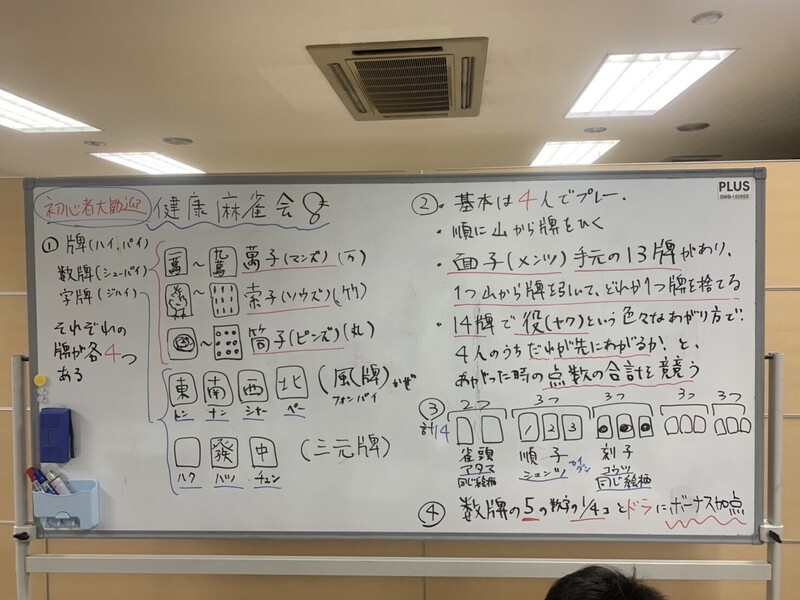 初心者大歓迎 健康麻雀会
① 牌(ハイ,パイ)
数牌(シューパイ)
字牌(ジハイ)
それぞれの
牌が各4つ
ある
一萬 〜 九萬 萬子(マンズ)(万)
〜 索子(ソウズ)(竹)
〜 筒子(ピンズ)(丸)
東 南 西 北 (風牌)かぜ
トン ナン シャー ペー フォンパイ
發 中 (三元牌)
ハク ハツ チュン
② ・基本は4人でプレー.
・順に山から牌をひく
・面子(メンツ)手元の13牌があり、
1つ山から牌を引いて、どれか1つ牌を捨てる
・14牌で役(ヤク)という色々なあがり方で
4人のうちだれが先にあがるか!と、
あがった時の点数の合計を競う
③ 2つ 3つ 3つ 3つ 3つ
計14 1 2 3
雀頭 順子 刻子
アタマ シュンツ コウツ
同じ絵柄 同じ絵柄
④ 数牌の5の数字の1/4コとドラにボーナス加点
PLUS